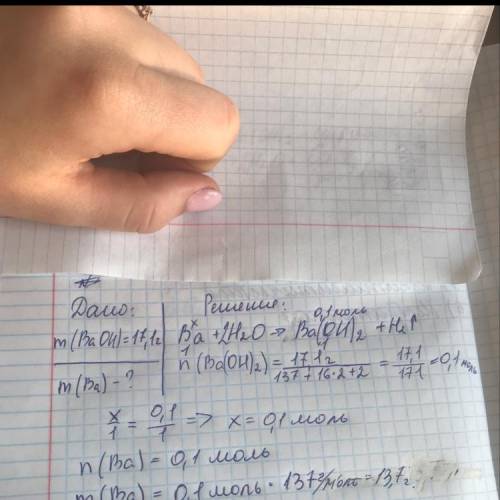 Дано:
m(BaOH)=17,1г
m(Ba)-?
Решение:
x 0,1 моль
Ba + 2H₂O => Ba(OH)₂ + H₂↑
1 1
n(Ba(OH)₂) = 17,1г / 137+16·2+2 = 17,1 / 171 = 0,1 моль
x/1 = 0,1/1 => x = 0,1 моль
n(Ba) = 0,1 моль
m(Ba) = 0,1 моль · 137 г/моль = 13,7 г.